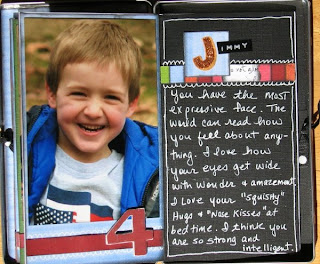 JIMMY
You have the most
expressive face. The
world can read how
you feel about any-
thing. I love how
your eyes get wide
with wonder & amazement.
I Love your "squishy"
Hugs & "Nose Kisses" at
bedtime. I think you
are so strong and
intelligent.
4